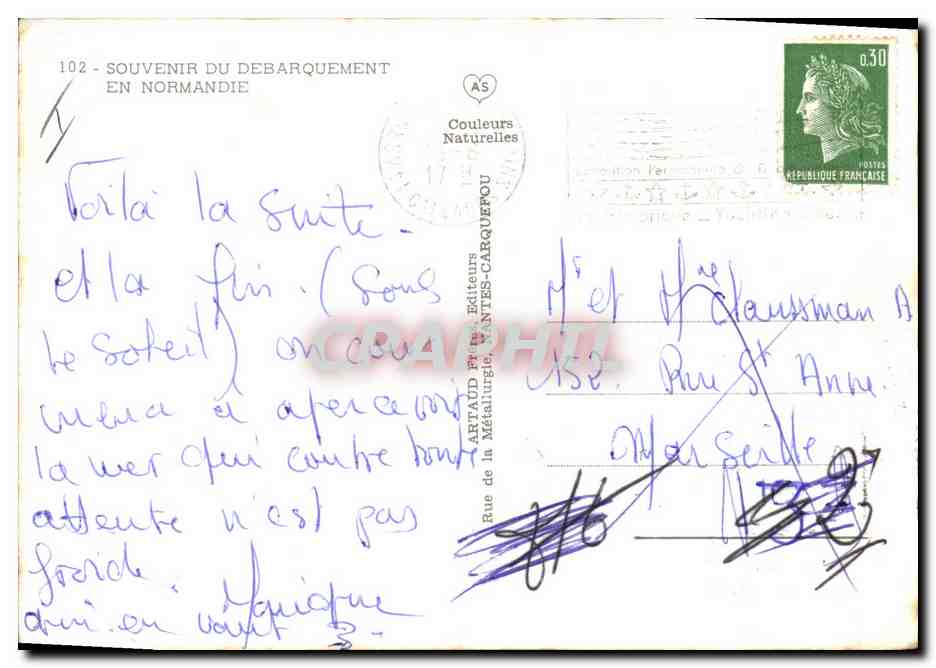 102 - SOUVENIR DU DEBARQUEMENT
EN NORMANDIE
AS
Couleurs
Naturelles
0,30
POSTES
REPUBLIQUE FRANÇAISE
17
Voilà la suite
et la fin. (sous
le soleil) on com
mence à apercevoir
la mer qui contre toute
attente n'est pas
froide.
qui en vaut 2.
ARTAUD Frères, Editeurs
Rue de la Métallurgie, NANTES-CARQUEFOU
Mr et Mme Haussman A
152 Rue St Anne
Marseille
CPAPHIL